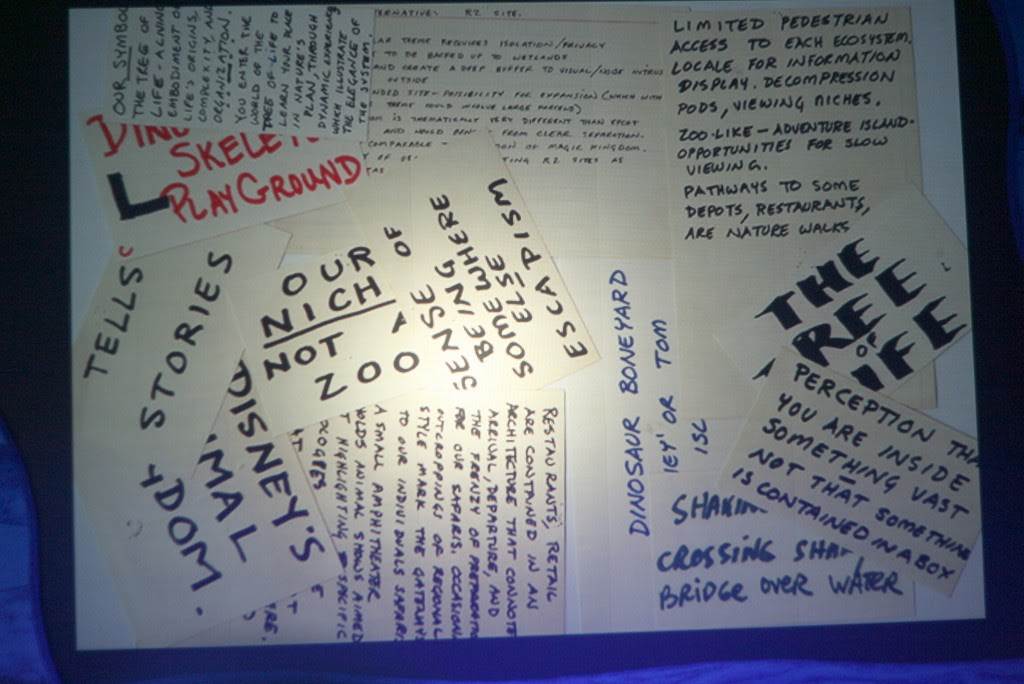 OUR SYMBOL
THE TREE OF
LIFE - A LIVING
EMBODIMENT OF
LIFE'S ORIGINS,
COMPLEXITY, AND
ORGANIZATION.
YOU ENTER THE
WORLD OF THE
TREE-OF-LIFE TO
LEARN YOUR PLACE
IN NATURE'S
PLAN, THROUGH
DYNAMIC EXPERIENCES
WHICH ILLUSTRATE
THE ELEGANCE OF
THE SYSTEM.
R2 SITE.
THEME REQUIRES ISOLATION/PRIVACY
TO BE BACKED UP TO WETLANDS
AND CREATE A DEEP BUFFER TO VISUAL/NOISE
OUTSIDE
SITE - POSIBILITY FOR EXPANSION (WHICH WITH
THEME COULD INVOLVE LARGE PARCELS)
IS THEMATICALLY VERY DIFFERENT THAN EPCOT
AND WOULD FROM CLEAR SEPARATION.
OF MAGIC KINGDOM.
R2 SITES AS
LIMITED PEDESTRIAN
ACCESS TO EACH ECOSYSTEM.
LOCALE FOR INFORMATION
DISPLAY. DECOMPRESSION
PODS, VIEWING NICHES.
ZOO-LIKE - ADVENTURE ISLAND-
OPPORTUNITIES FOR SLOW
VIEWING.
PATHWAYS TO SOME
DEPOTS, RESTAURANTS,
ARE NATURE WALKS
DINO
SKELE
PLAYGROUND
L
TELLS
STORIES
DISNEY'S
IMAL
DOM.
OUR
NICH
NOT A
ZOO
SENSE OF
BEING
SOMEWHERE
ELSE
ESCAPISM
RESTAURANTS, RETAIL
ARE CONTAINED IN AN
ARCHITECTURE THAT CONNOTE
ARRIVAL, DEPARTURE, AND
THE FRENZY OF
FOR OUR SAFARIS. OCCASIONAL
OUTCROPPINGS OF REGIONAL
STYLE MARK THE GATEWAYS
TO OUR INDIVIDUALS SAFARIS
A SMALL AMPHITHEATER
HOLDS ANIMAL SHOWS AIMED
HIGHLIGHTING SPECIFIC
DINOSAUR BONEYARD
IEY' OR TOM
THE
REE
OF
IFE
PERCEPTION THA
YOU ARE INSIDE
SOMETHING VAST
NOT THAT SOMETHING
IS CONTAINED IN A BOX
SHAKIN
CROSSING SHA
BRIDGE OVER WATER